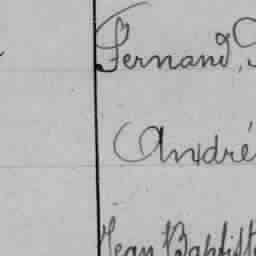 Fernand,
André
Jean Baptist